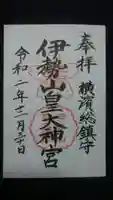 奉拝
横濱総鎮守
伊勢山皇大神宮
令和二年十二月三十日